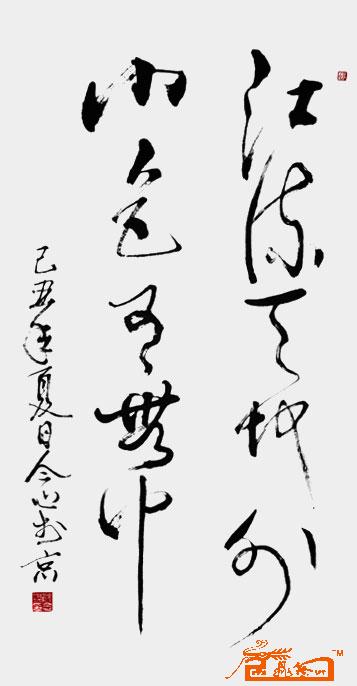 江流天地外
山色有無中
己丑年夏日令心書於京